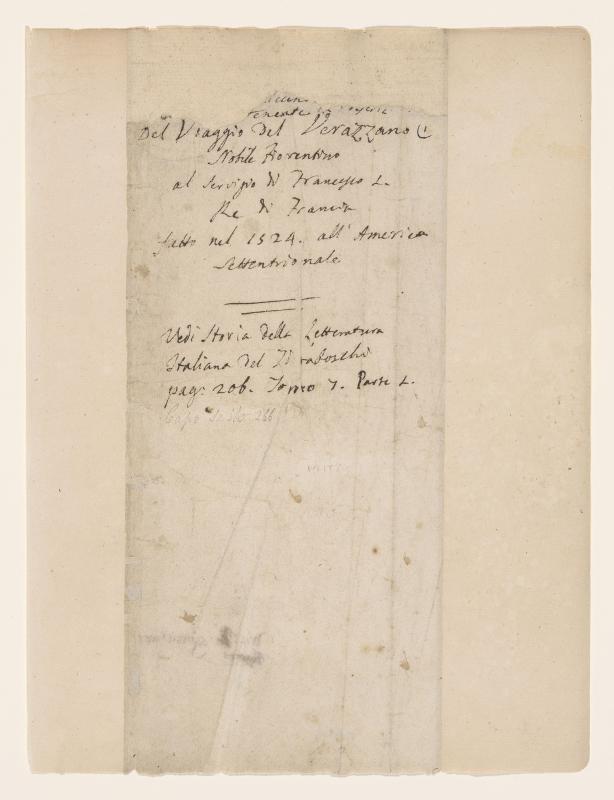 Del Viaggio del Verazzano
Nobile Fiorentino
al Servizio di Francesco I.
Re di Francia
fatto nel 1524. all' America
Settentrionale
Vedi Storia della Letteratura
Italiana del Tiraboschi
pag: 206. Tomo 7. Parte I.
Capo Sesto 266